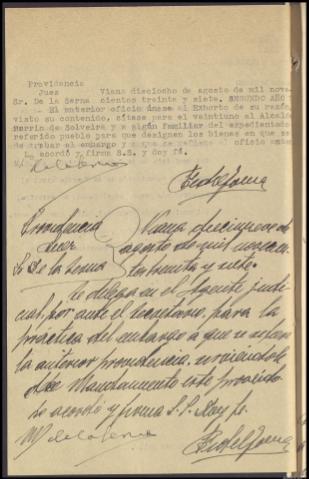 Providencia
Juez Viana dieciocho de agosto de mil nove
Sr. De la Serna cientos treinta y siete. SEGUNDO AÑO
El anterior oficio únase al Exhorto de su razón,
visto su contenido, cítese para el veintiuno al Alcald
Barrin de Solveira y a algún familiar del expedientado
referido pueblo para que designen los bienes en que se
de trabar el embargo a que se refiere el oficio
Lo acordó y firma S.S. y doy fé.
M. de la Serna
Providencia Viana diecinueve de
Juez agosto de mil novecien
Sr De la Serna tos treinta y siete.
Se delega en el Agente Judi
cial, por ante el Secretario, para la
práctica del embargo a que se refiere
la anterior providencia, sirviéndole
de Mandamiento este proveído
lo acordó y firma S.S. doy fe.
M. de la Serna